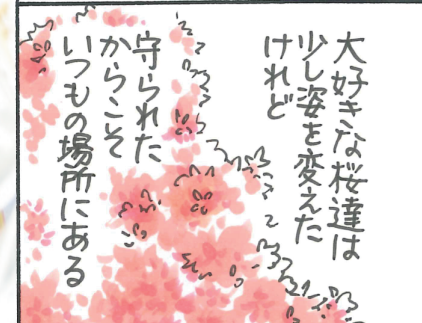 大好きな桜達は
少し姿を変えた
けれど
守られた
からこそ
いつもの場所にある